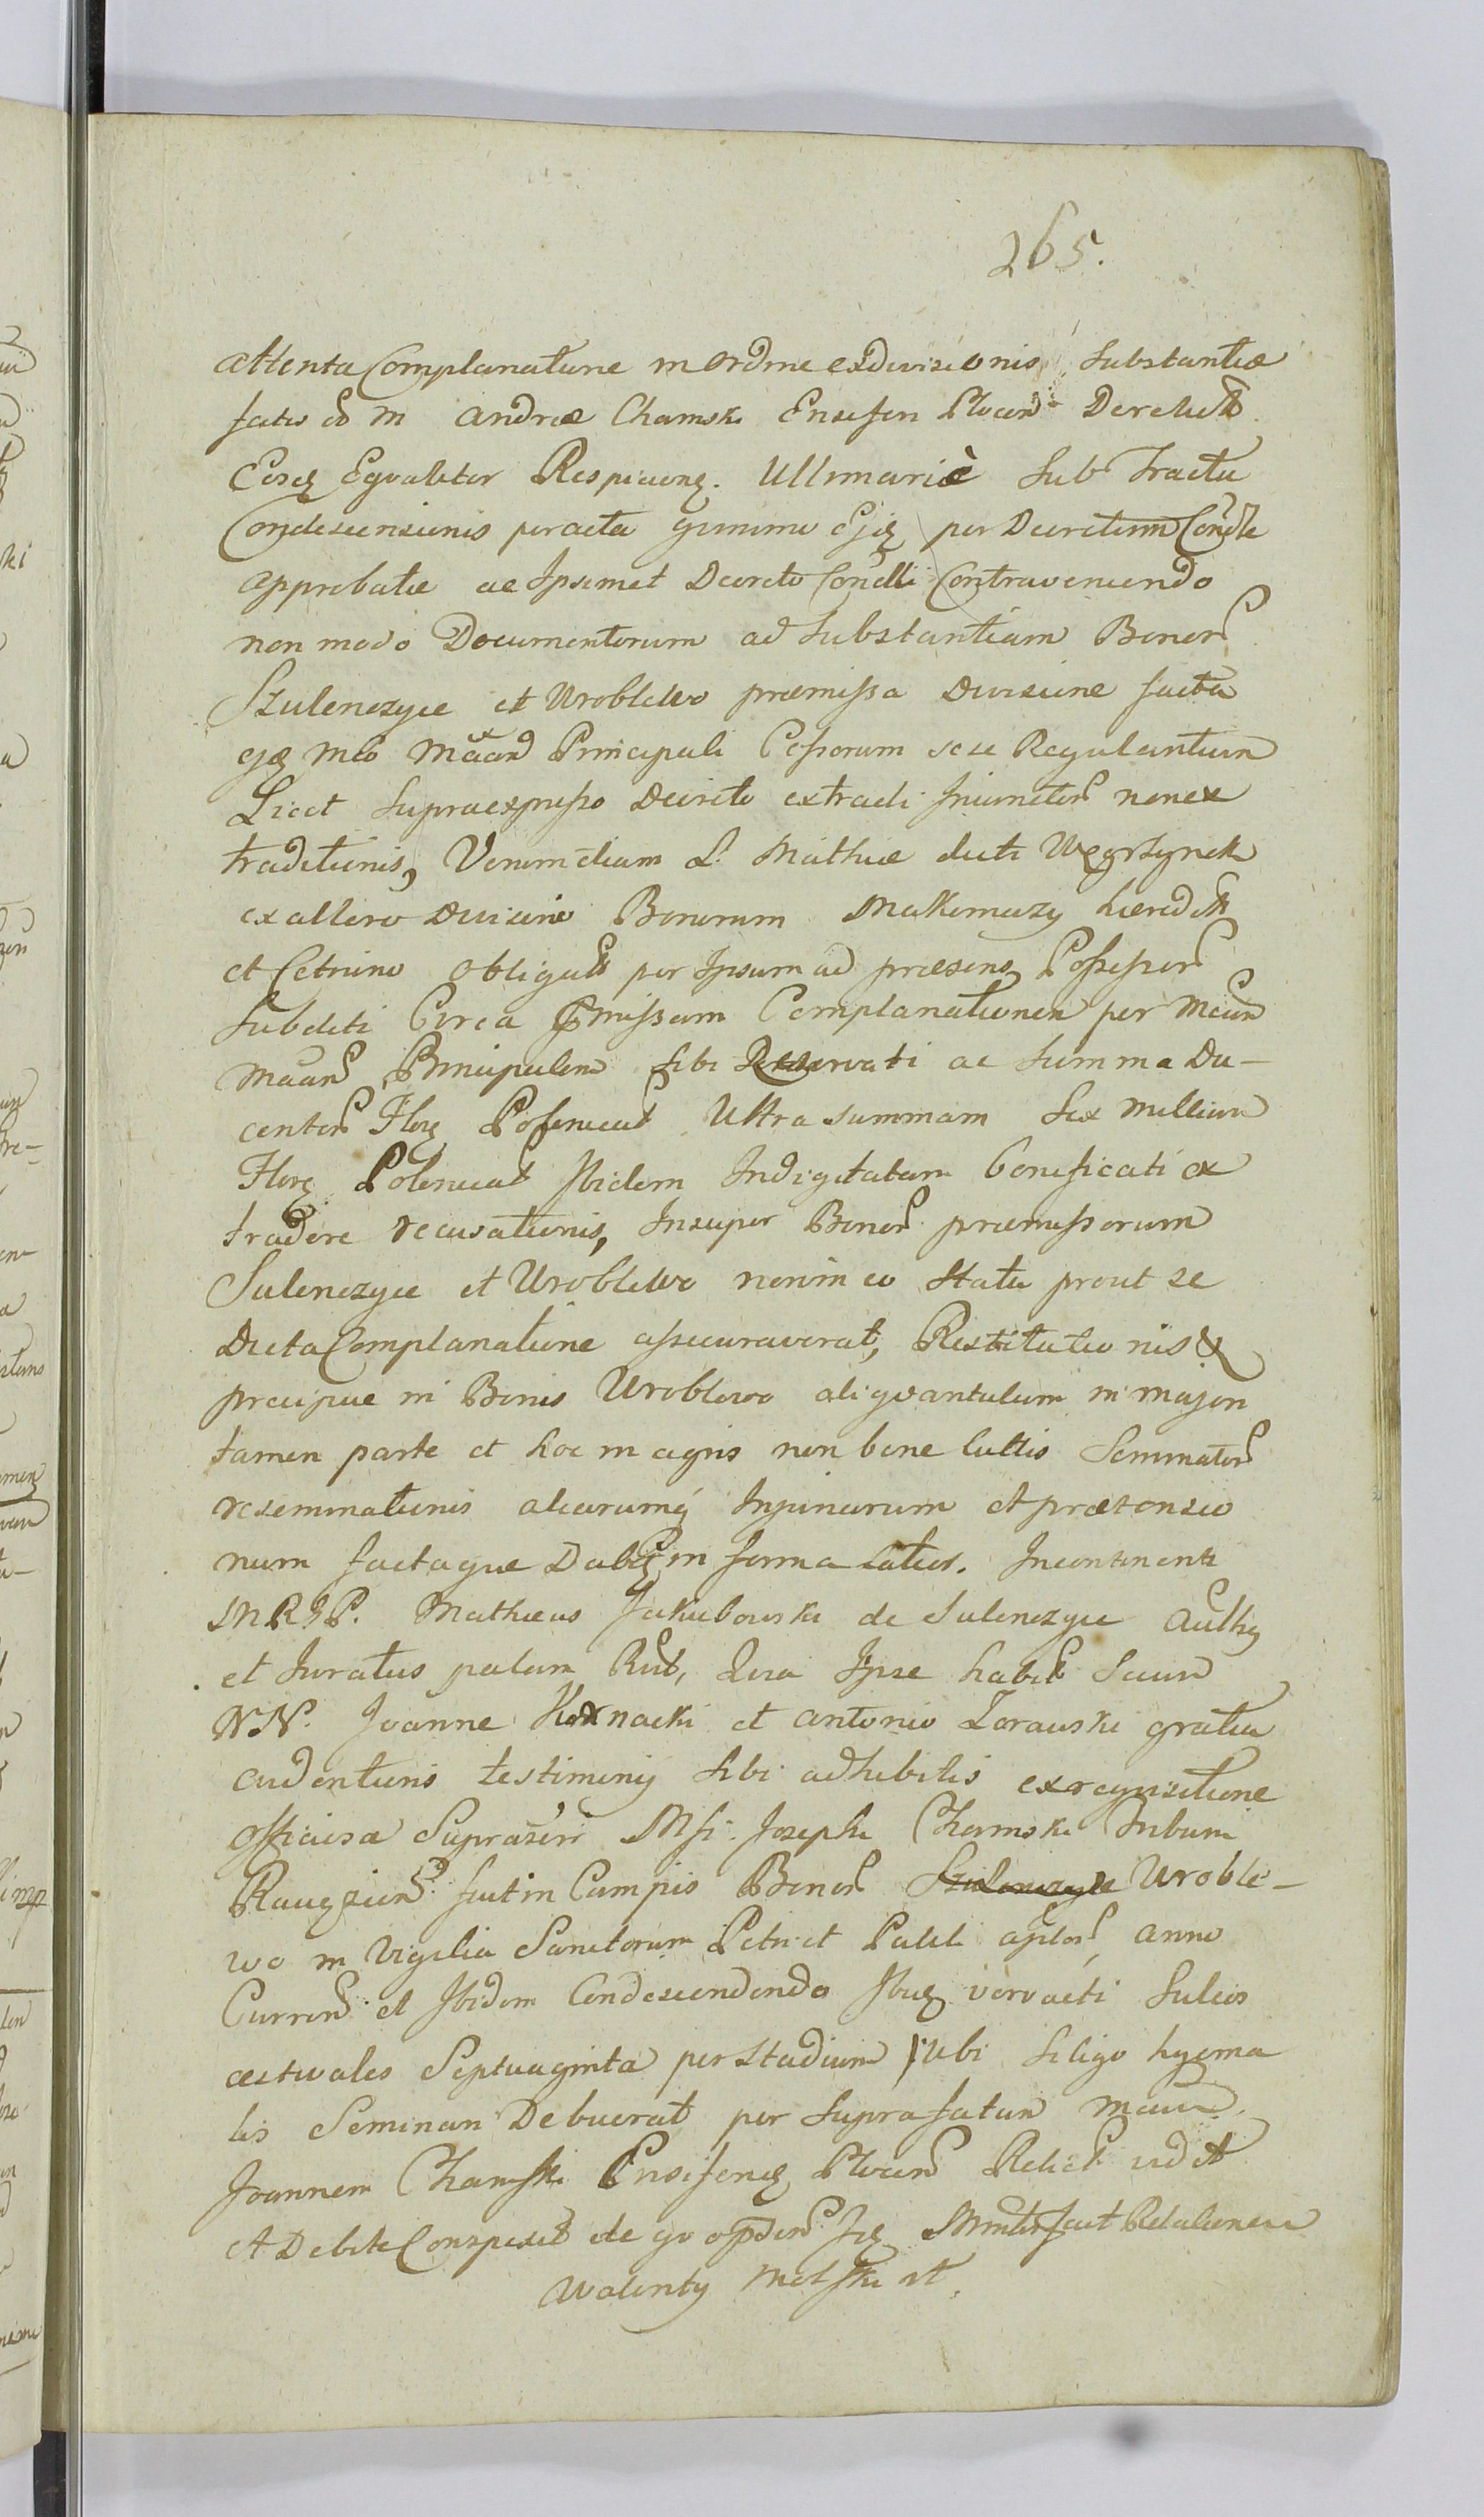 265.
attenta Complanatione in ordine exdivisionis Substantiæ
fato  m Andreæ Chamski Ensiferi Plocen Derelictæ
Eosq Eqvaliter Respicienq. Ultimariè Sub Tractu
Condescensionis peracta  per Decretum Condle
approbatæ ac Ipsimet Decreto Condlli Contraveniendo
non modo Documentorum ad Substantiam Bonor
Szulenczyce et Wroblewo præmissa Divisione facta
 Principali Cessorum sese Regulantium
Licet Supraexpresso Decreto extradi Iniunctor nonex
traditionis, Verum etiam L. Mathiæ dicti Węgrzynek
ex altero Divisino Bonorum Makomazy hæredit
et Cetnino obligat per Ipsum ad præsens Possessor
Subditi Circa pmissam Complanationem per Mcum
 Principalem sibi Reservati ac Summa Du-
centor Flor Polonical Ultra summam Sex Millium
Flor Polonical Ibidem Indigitatam bonificati ex
tradere recusationis, Insuper Bonor præmissorum
Sulenczyce et Wroblewo nonin eo Statu prout se
Dicta Complanatione assecuraverat, Restitutionis &
præcipue in Bonis Wroblewo aliqvantulum in majori
tamen parte et hoc in agris non bene Cultis Seminator
reseminationis aliarumq Injuriarum et prætensio
num factaque Dabiq in forma latior. Incontinenti
MRGP. Mathæus Jakubowski de Sulenczyce Authq
et Juratus palam Rcut, Quia Ipse habit Secum
NN. Joanne  et Antonio Zorawski gratia
evidentioris testimonij sibi adhibitis exreqvisitione
officiosa Suprascri Msi. Josephi Chamski Tribum
Raugzien fuit in Campis Bonor Szulenczyce Wroble-
wo in Vigilia Sanctorum Petri et Pauli aplor Anno
Curren et Ibidem Condescendendo Ibiq vervacti Sulcos
æstivales Septuaginta per Stadium Ubi Siligo hyema
lis Seminari Debuerat per Suprafatum Mcum
Joannem Chamski Ensiferiq Plocen Relict vidit
et Debite Conspexit de qvo  Retationem
Walenty Motski